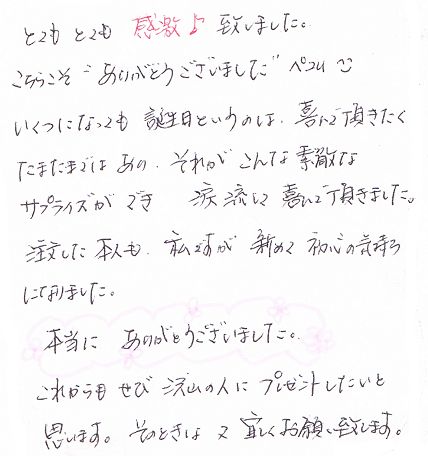 とてもとても 感激♪ 致しました。
こちらこそ“ありがとうございました”ペコリ☺
いくつになっても 誕生日というのは、喜んで頂きたく
たまたまではあの、それが こんな素敵な
サプライズができ 涙流して 喜んで頂きました。
注文した本人も、私ですが 新めて 初心の気持ち
になりました。
本当に ありがとうございました。
これからも ぜひ 沢山の人に プレゼントしたいと
思います。そのときは又 宜しくお願い致します。